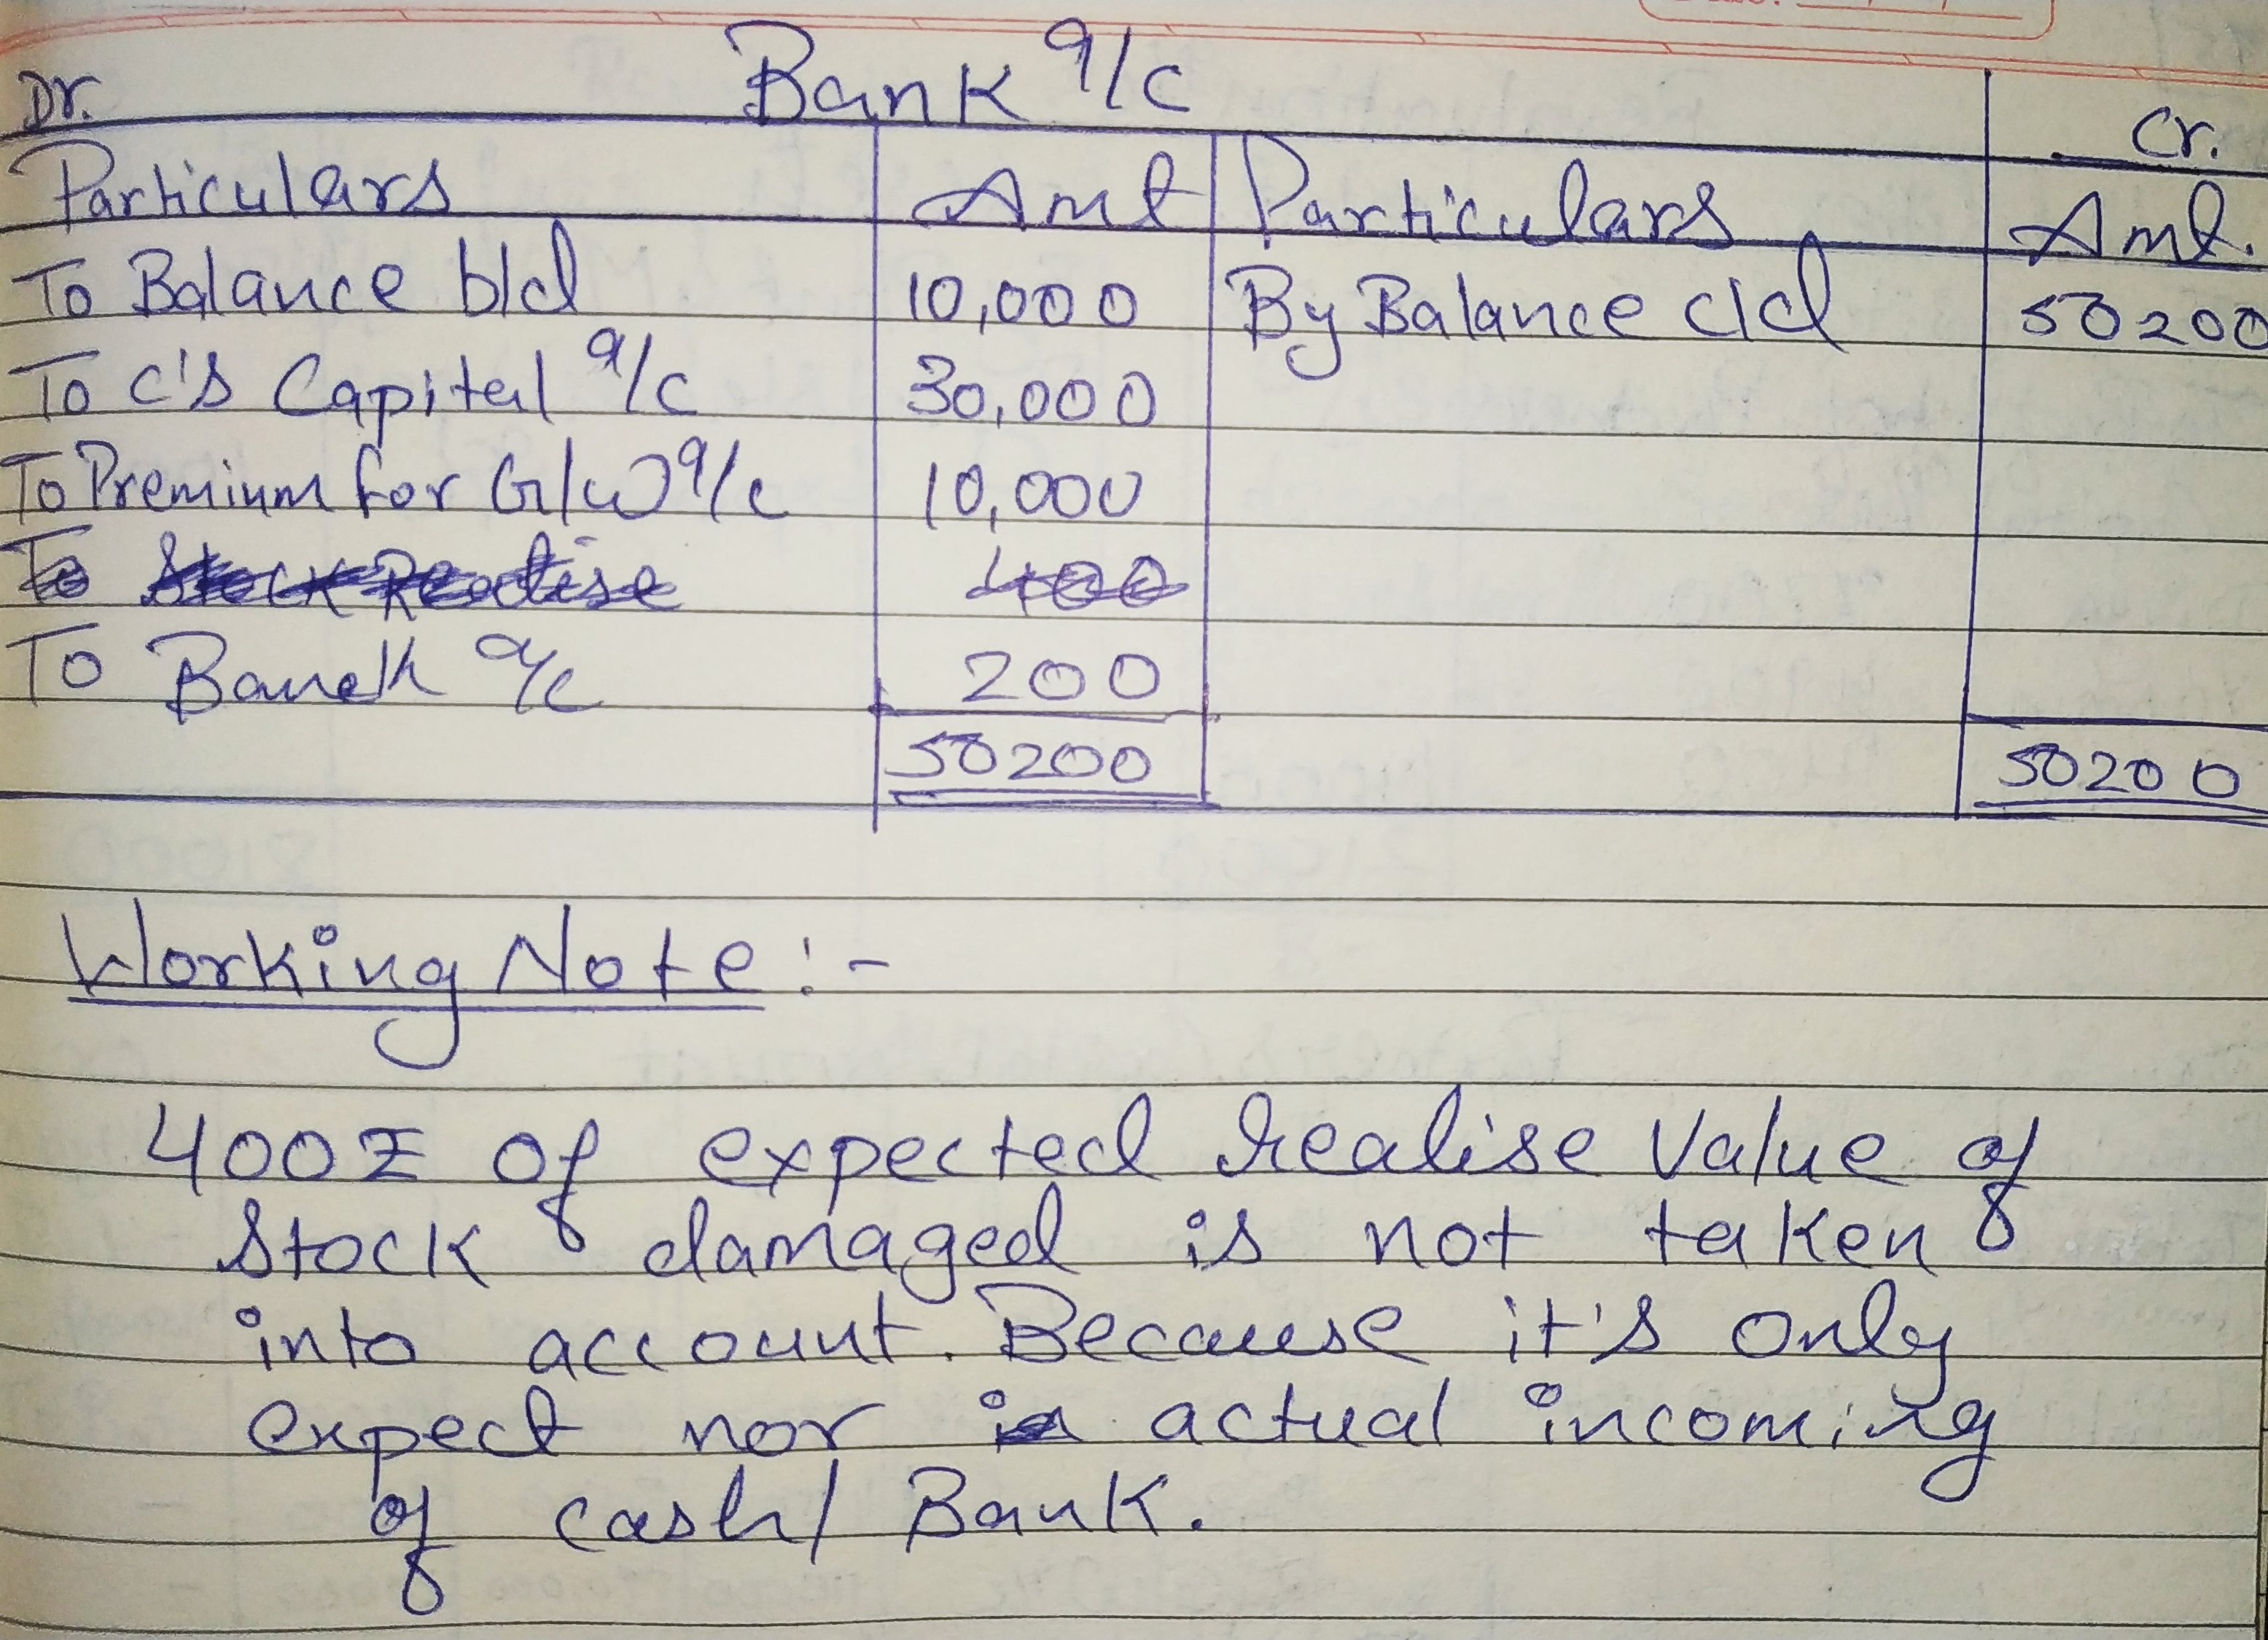 Bank a/c
Dr. Cr.
Particulars Amt Particulars Amt.
To Balance b/d 10,000 By Balance c/d 50200
To C's Capital a/c 30,000
To Premium for G/W a/c 10,000
To Stock Realise 400
To Bank a/c 200
50200 50200
Working Note :-
400₹ of expected realise value of
stock damaged is not taken
into account. Because it's only
expect nor actual incoming
of cash/ Bank.